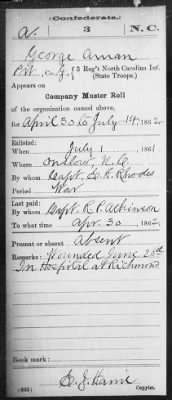 (Confederate.)
a. 3 N.C.
George Aman
Pvt, Co. G, { 3 Reg't North Carolina Inf.
(State Troops.)
Appears on
Company Muster Roll
of the organization named above,
for April 30 to July 14, 1862.
Enlisted:
When July 1, 1861.
Where Onslow, N.C.
By whom Capt. E. H. Rhodes
Period War
Last paid:
By whom Capt. R. P. Atkinson
To what time Apr. 30, 1862.
Present or absent Absent
Remarks: Wounded June 25th
In Hospital at Richmond
Book mark:
(642)
Copyist.